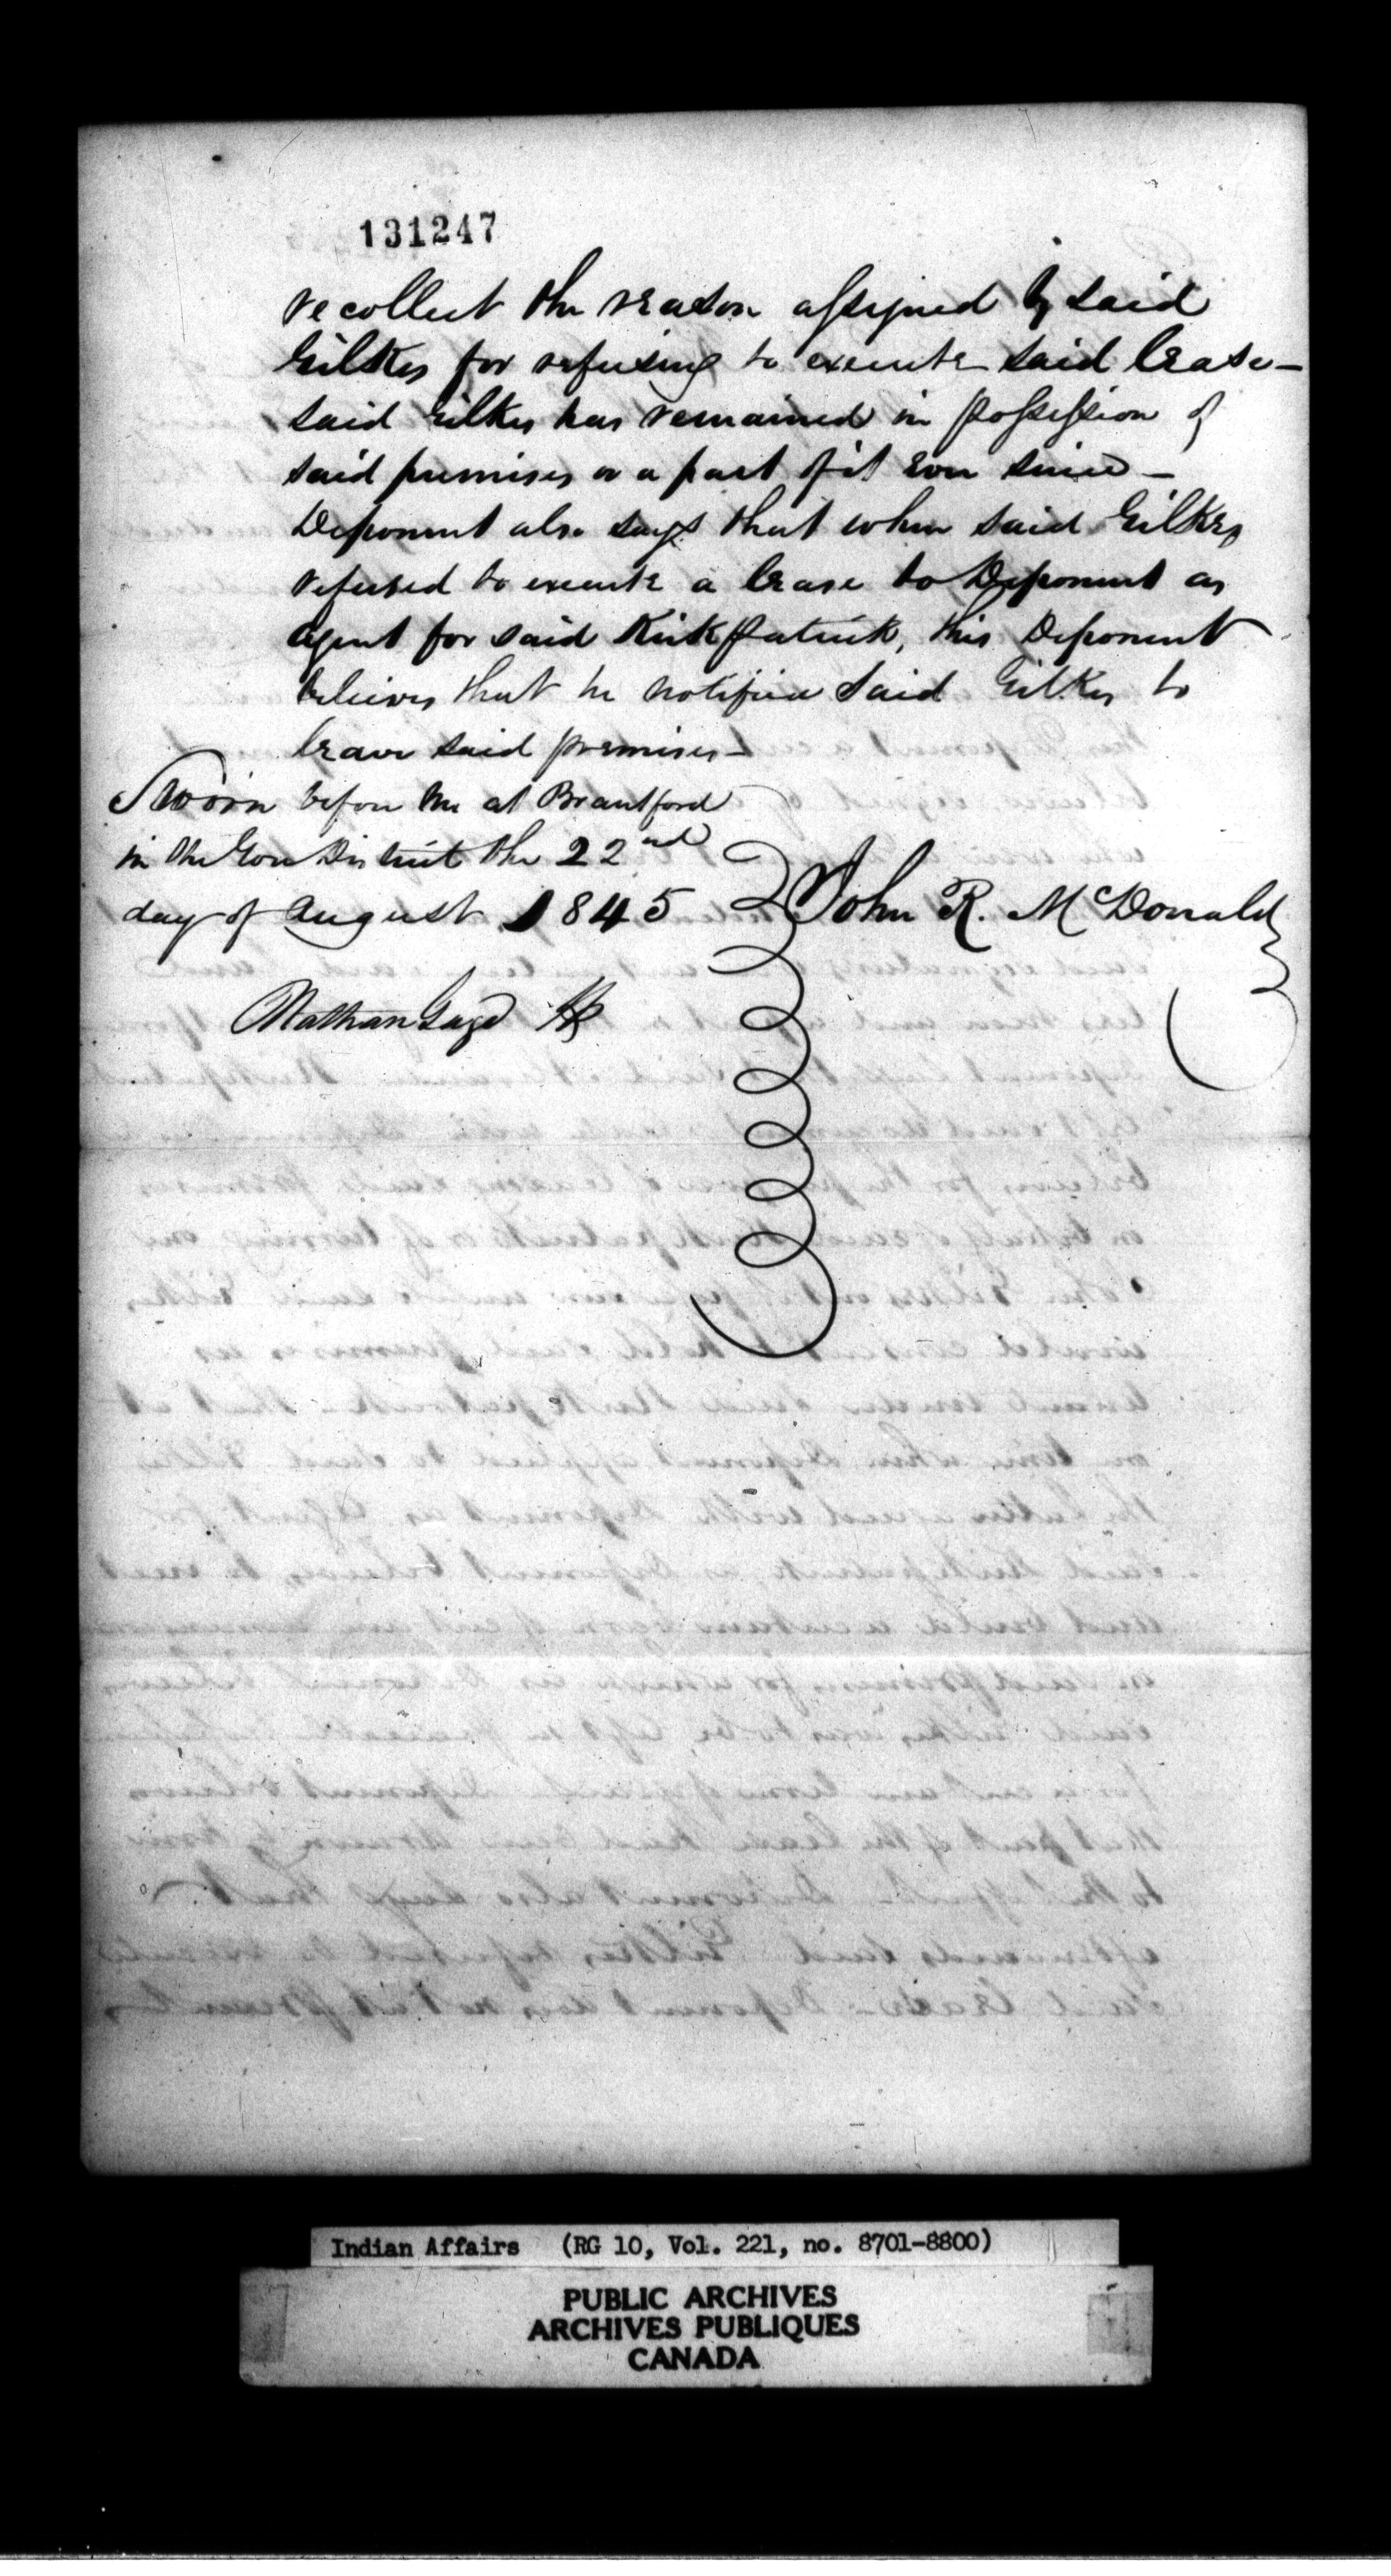 131247
recollect the reason assigned by said
Gilkes for refusing to execute said lease—
said Gilkes has remained in possession of
said premises or a part of it ever since—
Deponent also says that when said Gilkes
refused to execute a lease to Deponent as
agent for said Kirkpatrick, this Deponent
believes that he notified said Gilkes to
leave said premises—
Sworn before me at Brantford
in the Gore District the 22nd
day of August 1845
John R. McDonald
Nathan Gage JP
Indian Affairs (RG 10, Vol. 221, no. 8701-8800)
PUBLIC ARCHIVES
ARCHIVES PUBLIQUES
CANADA